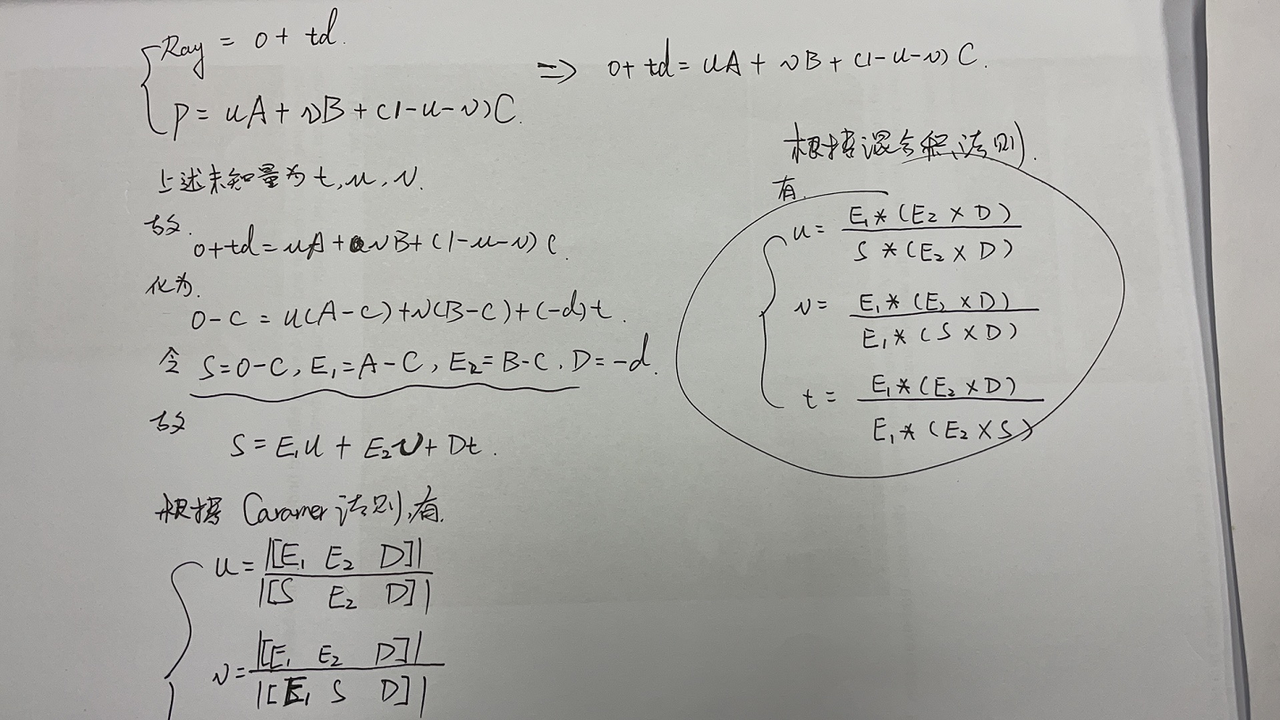 Ray = o + td.
P = uA + vB + (1-u-v)C.
=> o + td = uA + vB + (1-u-v)C.
上述未知量为 t, u, v.
故.
o+td = uA + vB + (1-u-v)C.
化为.
O-C = u(A-C) + v(B-C) + (-d)t.
令 S=O-C, E₁=A-C, E₂=B-C, D=-d.
故
S = E₁u + E₂v + Dt.
根据 Caramer 法则,有.
u = |[E₁ E₂ D]| / |[S E₂ D]|
v = |[E₁ E₂ D]| / |[E₁ S D]|
根据混合积法则.
有.
u = E₁*(E₂×D) / S*(E₂×D)
v = E₁*(E₂×D) / E₁*(S×D)
t = E₁*(E₂×D) / E₁*(E₂×S)